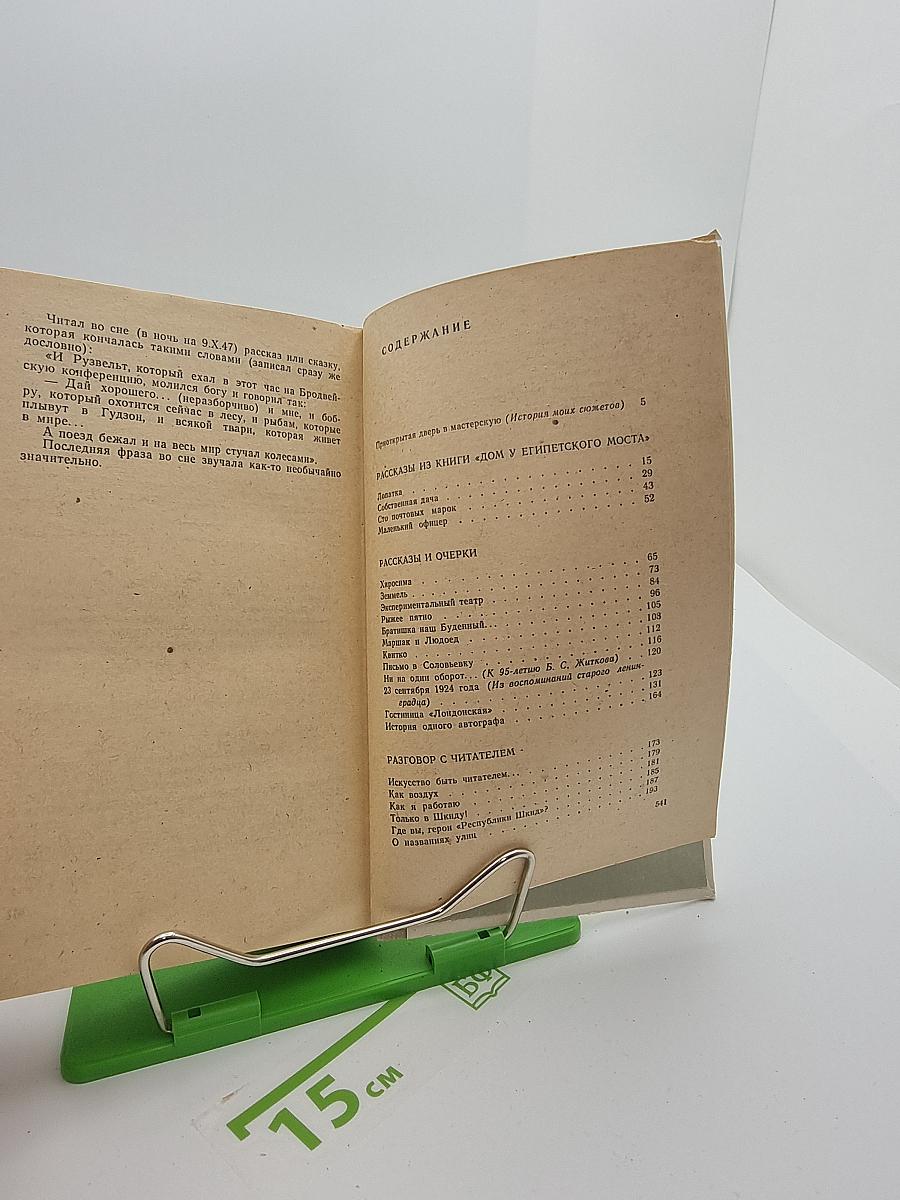 Читал во сне (в ночь на 9.X.47) рассказ или сказку,
которая кончалась такими словами (записал сразу же
дословно):
«И Рузвельт, который ехал в этот час на Бродвей-
скую конференцию, молился богу и говорил так:
— Дай хорошего... (неразборчиво) и мне, и боб-
ру, который охотится сейчас в лесу, и рыбам, которые
плывут в Гудзон, и всякой твари, которая живет
в мире...
А поезд бежал и на весь мир стучал колесами».
Последняя фраза во сне звучала как-то необычайно
значительно.
СОДЕРЖАНИЕ
Приоткрытая дверь в мастерскую (История моих сюжетов) 5
РАССКАЗЫ ИЗ КНИГИ «ДОМ У ЕГИПЕТСКОГО МОСТА»
Лопатка . . . . . . . . . . 15
Собственная дача . . . . . . . . . . 29
Сто почтовых марок . . . . . . . . . . 43
Маленький офицер . . . . . . . . . . 52
РАССКАЗЫ И ОЧЕРКИ
Хиросима . . . . . . . . . . 65
Земмель . . . . . . . . . . 73
Экспериментальный театр . . . . . . . . . . 84
Рыжее пятно . . . . . . . . . . 96
Братишка наш Буденный... . . . . . . . . . . 105
Маршак и Людоед . . . . . . . . . . 108
Квитко . . . . . . . . . . 112
Письмо в Соловьевку . . . . . . . . . . 116
Ни на один оборот... (К 95-летию Б. С. Житкова) . . 120
23 сентября 1924 года (Из воспоминаний старого ленин-
градца) . . . . . . . . . . 123
Гостиница «Лондонская» . . . . . . . . . . 131
История одного автографа . . . . . . . . . . 164
РАЗГОВОР С ЧИТАТЕЛЕМ
Искусство быть читателем... . . . . . . . . . . 173
Как воздух . . . . . . . . . . 179
Как я работаю . . . . . . . . . . 181
Только в Шкиду! . . . . . . . . . . 185
Где вы, герои «Республики Шкид»? . . . . . . . . . . 187
О названиях улиц . . . . . . . . . . 193
541
БФ
15 см